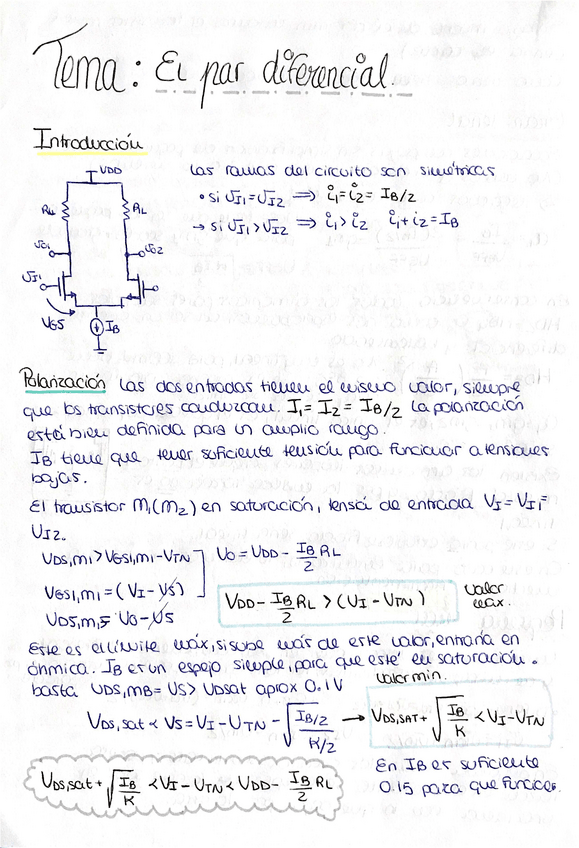 Tema: El par diferencial.
Introducción
VDD
RL
RL
vo1
vo2
vI1
VGS
IB
las ramas del circuito son simétricas
• si vI1 = vI2 ⟹ i1 = i2 = IB/2
→ si vI1 > vI2 ⟹ i1 > i2   i1 + i2 = IB
Polarización Las dos entradas tienen el mismo valor, siempre
que los transistores conduzcan. I1 = I2 = IB/2 La polarización
está bien definida para un amplio rango.
IB tiene que tener suficiente tensión para funcionar a tensiones
bajas.
El transistor M1(M2) en saturación, tensa de entrada VI = VI1 =
VI2.
VDS,M1 > VGS1,M1 - VTN
VO = VDD - IB/2 RL
VGS1,M1 = (VI - VS)
VDS,M1 = VO - VS
VDD - IB/2 RL > (VI - VTN)
valor
max.
Este es el límite máx, si sube más de este valor, entraría en
óhmica. IB es un espejo simple, para que esté en saturación.
basta VDS,MB = VS > VDsat aprox 0.1V
valor min.
VDS,sat < VS = VI - VTN - √((IB/2)/(K/2)) → VDS,SAT + √(IB/K) < VI - VTN
VDS,sat + √(IB/K) < VI - VTN < VDD - IB/2 RL
En IB es suficiente
0.15 para que funcione.